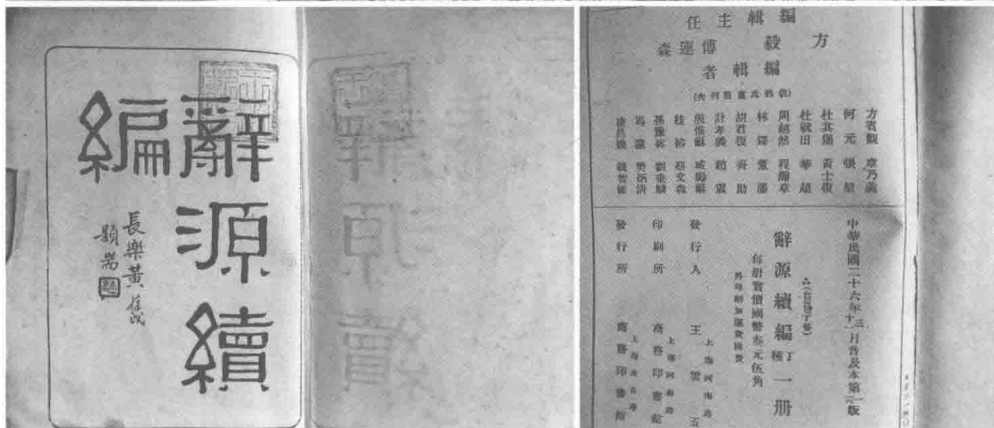 辭源續
編
長樂黃葆戉
題耑
編輯主任
方毅 傅運森
編輯者
(以姓氏筆畫列次)
方賓觀 章乃羹
何元 張
杜其堡 黃士復
杜就田 華超
周越然 程
林鐸 董
胡君復
計孝 趙震
殷惟龢 臧勵龢
桂裕 蔡文森
孫 劉秉麟
馬瀛 樊炳清
魏
中華民國二十六年 月普及本第一版
辭源續編丁種一册
每册實價國幣叁元伍角
外埠酌加運費匯費
發行人 王雲五
上海河南路
印刷所 商務印書館
上海河南路
發行所 商務印書館
上海及各埠